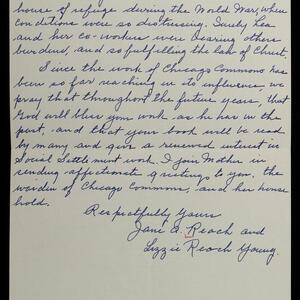 house of refuge during the World War, when
conditions were so distressing. Surely Lea
and her co-workers were bearing others
burdens, and so fulfilling the law of Christ.
Since the work of Chicago Commons has
been so far reaching in its influence, we
pray that throughout the future years, that
God will bless your work as he has in the
past, and that your book will be read
by many and give a renewed interest in
Social Settlement work. I join Mother in
sending affectionate greetings to you, the
warden of Chicago Commons, and her house
hold.
Respectfully Yours
Jane A. Reoch and
Lizzie Reoch Young.